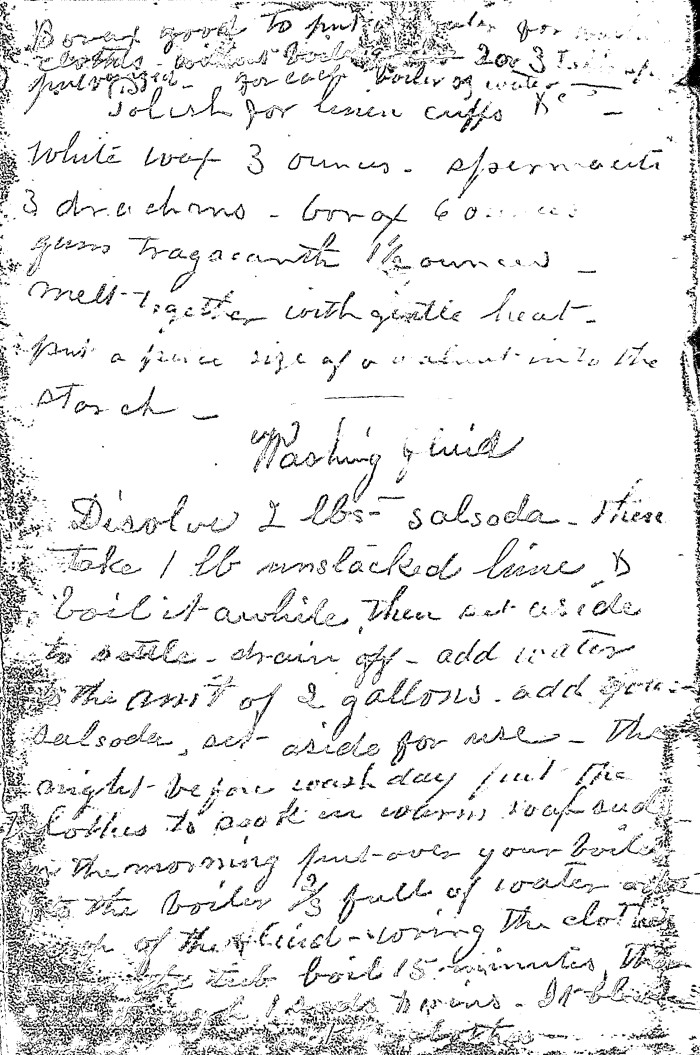 Borax good to put water for
clothes - without boiling 2 or 3
pulverized. for each boiler of water —
Polish for linen cuffs &c —
White wax 3 ounces - spermaceti
3 drachms - borax 6 ounces
gum Tragacanth 1½ ounces —
melt together with gentle heat -
put a piece size of a walnut into the
starch —
Washing fluid
Disolve 2 lbs - salsoda - then
take 1 lb unslacked lime &
boil it awhile, then set aside
to settle - drain off - add water
to the amt of 2 gallons - add your
salsoda, set aside for use - the
night before wash day put the
clothes to soak in warm soap suds
in the morning put over your boiler
the boiler ⅔ full of water
of the fluid - wring the clothes
tub boil 15 minutes, then
suds & rins - It
clothes —